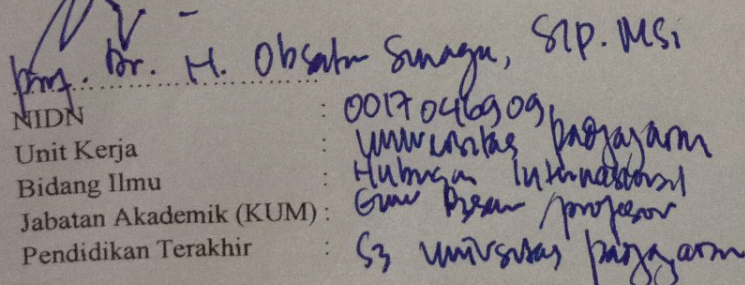 Prof. Dr. H. Obsatar Sinaga, SIP. MSi
NIDN : 0017046909
Unit Kerja : Universitas Padjajaran
Bidang Ilmu : Hubungan Internasional
Jabatan Akademik (KUM) : Guru Besar / profesor
Pendidikan Terakhir : S3 Universitas Padjajaran